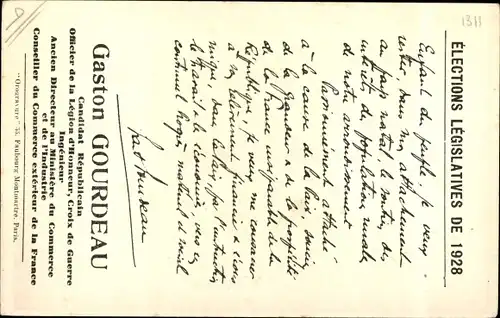 ÉLECTIONS LÉGISLATIVES DE 1928
Enfant du peuple, je veux
rester, dans mon attachement
au pays natal, le soutien des
intérêts des populations rurales
de notre arrondissement
Passionnément attaché
à la cause de la Paix, soucieux
de la grandeur et de la prospérité
de la France inséparable de la
République, je veux me consacrer
à son relèvement financier et écono
mique, dans la paix, par l'instruction
le travail et l'économie, vers un
continuel progrès matériel et moral
Gaston GOURDEAU
Candidat Républicain
Officier de la Légion d'Honneur, Croix de Guerre
Ingénieur
Ancien Directeur au Ministère du Commerce
et de l'Industrie
Conseiller du Commerce extérieur de la France
"Orogravure" 35, Faubourg Montmartre, Paris.